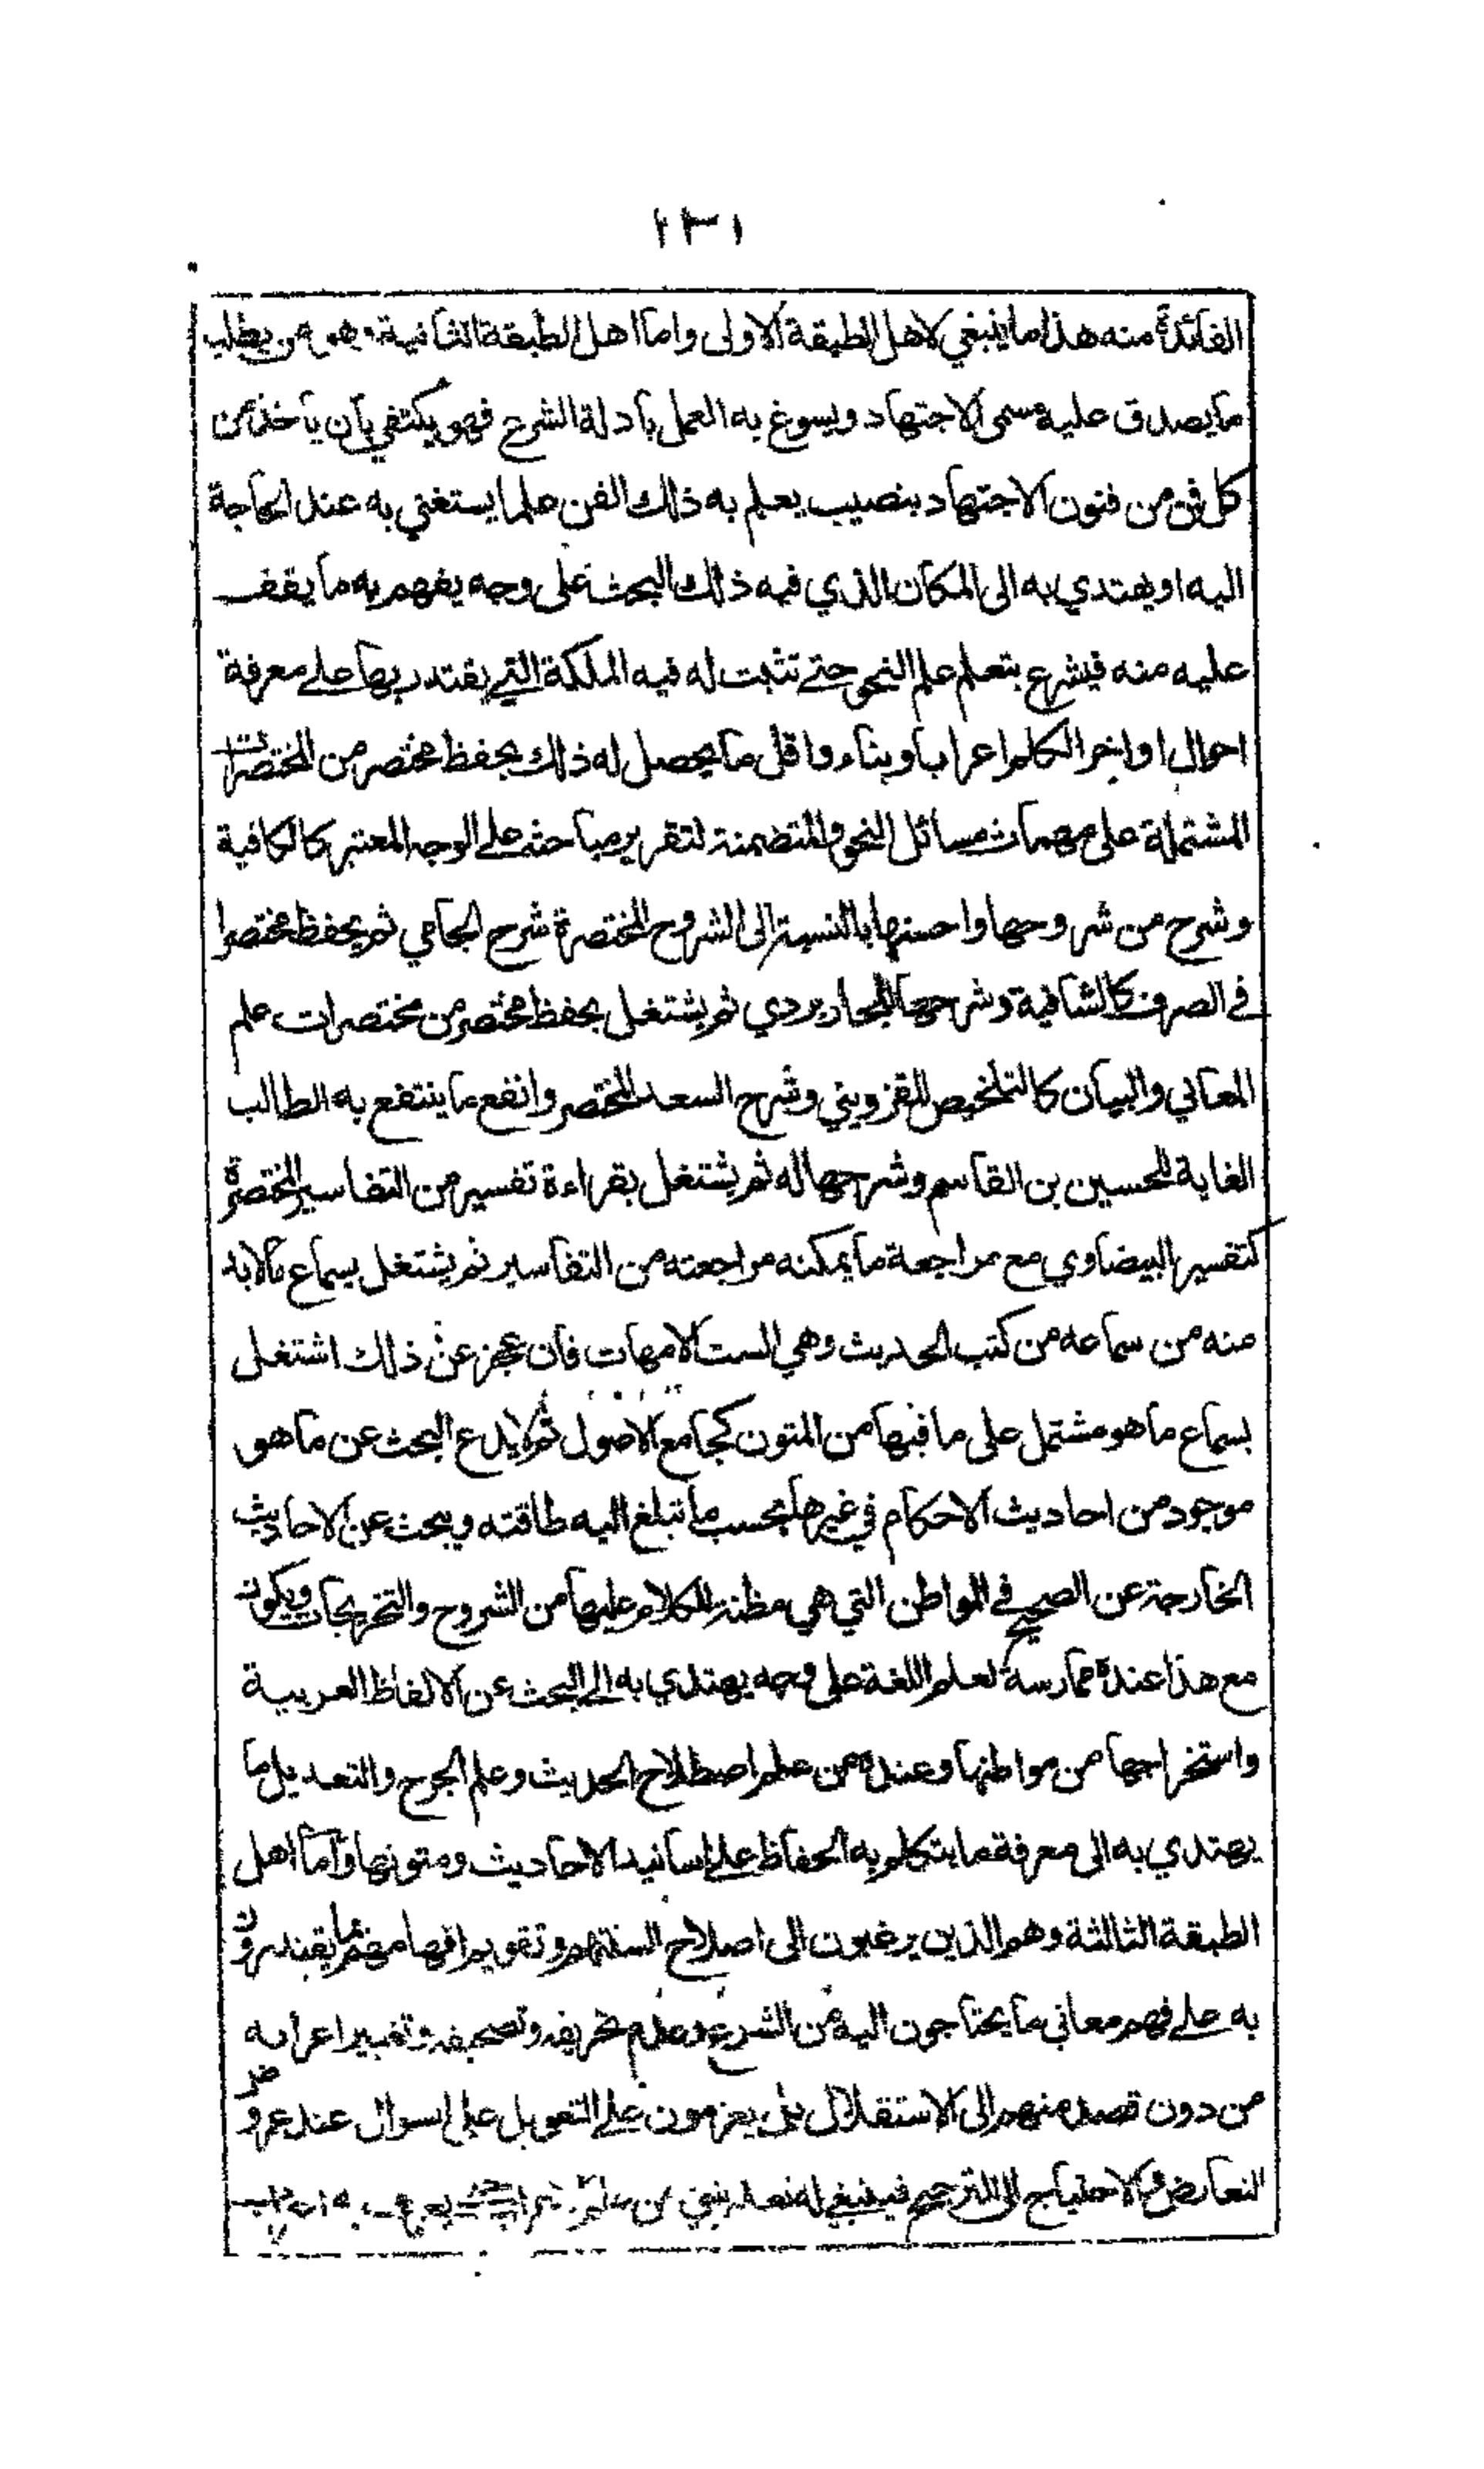 ١٣١
الفائدة منه هذا ما ينبغي لاهل الطبقة الاولى واما اهل الطبقة الثانية وهو من يطلب
ما يصدق عليه مسمى الاجتهاد ويسوغ به العمل بادلة الشرع فهو يكتفي بان ياخذ من
كل فن من فنون الاجتهاد بنصيب يعلم به ذلك الفن علما يستغني به عند الحاجة
اليه او يهتدي به الى المكان الذي فيه ذلك البحث على وجه يفهم به ما يقف
عليه منه فيشرع بتعلم علم النحو حتى تثبت له فيه الملكة التي يقتدر بها على معرفة
احوال اواخر الكلم اعرابا وبناء واقل ما يحصل له ذلك بحفظ مختصر من المختصرات
المشتملة على مهمات مسائل النحو والمتضمنة لتقرير مباحثه على الوجه المعتبر كالكافية
وشرح من شروحها واحسنها بالنسبة الى الشروح المختصرة شرح الجامي ثم يحفظ مختصرا
في الصرف كالشافية وشرحها للجاربردي ثم يشتغل بحفظ مختصر من مختصرات علم
المعاني والبيان كالتلخيص للقزويني وشرح السعد المختصر وانفع ما ينتفع به الطالب
الغاية للحسين بن القاسم وشرحها له ثم يشتغل بقراءة تفسير من التفاسير المختصرة
كتفسير البيضاوي مع مراجعة ما يمكنه مراجعته من التفاسير ثم يشتغل بسماع ما لابد
منه من سماعه من كتب الحديث وهي الست الامهات فان عجز عن ذلك اشتغل
بسماع ما هو مشتمل على ما فيها من المتون كجامع الاصول ثم لا يدع البحث عن ما هو
موجود من احاديث الاحكام في غيرها بحسب ما تبلغ اليه طاقته ويبحث عن الاحاديث
الخارجة عن الصحيح في المواطن التي هي مظنة للكلام عليها من الشروح والتخريجات ويكون
مع هذا عنده ممارسة لعلم اللغة على وجه يهتدي به الى البحث عن الالفاظ العربية
واستخراجها من مواطنها وعنده من علم اصطلاح الحديث وعلم الجرح والتعديل ما
يهتدي به الى معرفة ما يتكلم به الحفاظ على اسانيد الاحاديث ومتونها واما اهل
الطبقة الثالثة وهم الذين يرغبون الى اصلاح السنتهم وتقويم افهامهم بما يقتدرون
به على فهم معاني ما يحتاجون اليه من الشرع وعدم تحريفه وتصحيفه وتغيير اعرابه
من دون قصد منهم الى الاستقلال بل يعزمون على التعويل على السوال عند عروض
التعارض والاحتياج الى الترجيح فينبغي له تعلم شيئ من علم يعرف به